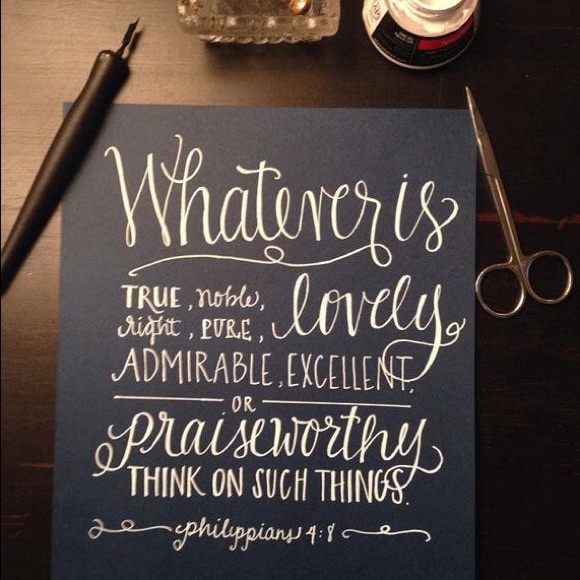 Whatever is
TRUE, noble,
right, PURE, lovely,
ADMIRABLE, EXCELLENT,
OR
praiseworthy
THINK ON SUCH THINGS.
philippians 4:8